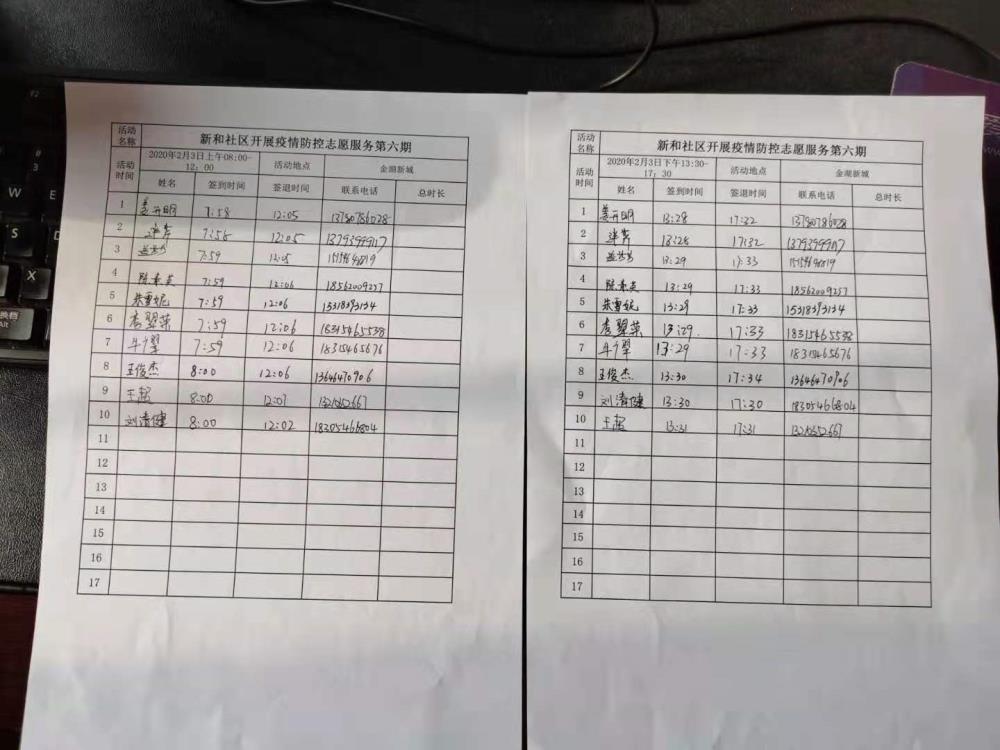 活动名称 新和社区开展疫情防控志愿服务第六期
活动时间 2020年2月3日上午08:00-12:00 活动地点 金湖新城
姓名 签到时间 签退时间 联系电话 总时长
1 姜开明 7:58 12:05 13780786028
2 7:58 12:05 13793999117
3 7:59 12:05
4 陈素英 7:59 12:06 18562009257
5 朱雪妮 7:59 12:06 15318393134
6 李翠荣 7:59 12:06 18315465538
7 7:59 12:06 18315465676
8 王俊杰 8:00 12:06 13646470906
9 王超 8:00 12:07
10 刘清健 8:00 12:02 18305466804
11
12
13
14
15
16
17
活动名称 新和社区开展疫情防控志愿服务第六期
活动时间 2020年2月3日下午13:30-17:30 活动地点 金湖新城
姓名 签到时间 签退时间 联系电话 总时长
1 姜开明 13:28 17:32 13780786028
2 13:28 17:32 13793999117
3 13:29 17:33
4 陈素英 13:29 17:33 18562009257
5 朱雪妮 13:29 17:33 15318393134
6 李翠荣 13:29 17:33 18315465538
7 13:29 17:33 18315465676
8 王俊杰 13:30 17:34 13646470906
9 刘清健 13:30 17:30 18305466804
10 王超 13:31 17:31
11
12
13
14
15
16
17